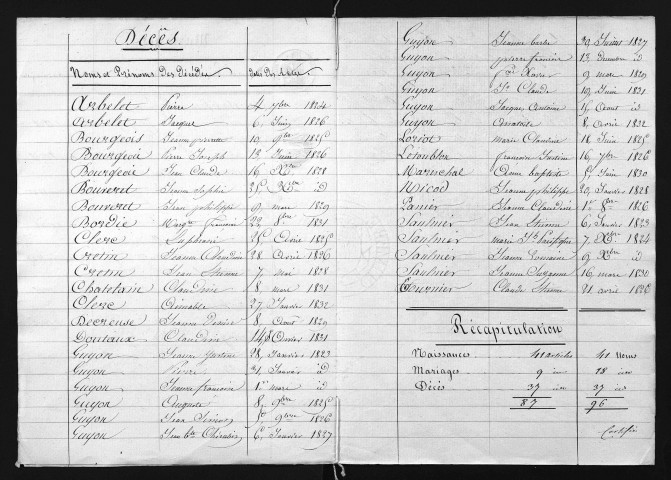 Décès
Noms et Prénoms Des Décédés Dates Des Actes
Arbelet Pierre 4 7bre 1824
Arbelet Jacques 6 Juin 1826
Bourgeois Jeanne pierrette 19 9bre 1825
Bourgeois Pierre Joseph 13 Juin 1826
Bourgeois Jean Claude 16 Xbre 1828
Bouveret Jeanne 25 Xbre id
Bouveret Jean philippe 9 mars 1829
Bordie Marg. 22 8bre 1831
Clerc 25 avril 1825
Cretin Jeanne Claudine 28 avril 1826
Cretin Jean Etienne 7 mai 1828
Chatelain Claudine 8 mars 1831
Clerc 27 Janvier 1832
Decreuse Jeanne 8 aout 1829
Coutaux Claudine 14 1831
Guyon Jeanne Justine 28 Janvier 1823
Guyon Pierre 31 Janvier id
Guyon Jeanne francoise 1er mars id
Guyon Auguste 8 9bre 1825
Guyon Jean 9bre 1826
Guyon Jean Bte 6 Janvier 1827
Guyon Jeanne 29 Juin 1827
Guyon 13 id
Guyon Xavier 9 mars 1829
Guyon Claude 19 Juin 1831
Guyon Jacque Antoine 15 aout id
Guyon 8 avril 1832
Loriot marie Claudine 18 Juin 1825
Letoublon francois Justin 16 7bre 1826
Marechal Anne baptiste 5 Juin 1830
Nicod Jeanne philippe 29 Janvier 1828
Panier Jeanne Claudine 1er 8bre 1826
Saulnier Jean Etienne 6 Janvier 1823
Saulnier Marie 7 Xbre 1824
Saulnier Jeanne 9 id
Saulnier Jeanne Suzanne 16 mars 1830
Tournier Claude Etienne 21 avril 1826
Récapitulation
Naissances 41 articles 41 Noms
Mariages 9 id 18 id
Décès 37 id 37 id
87 96
Certifié